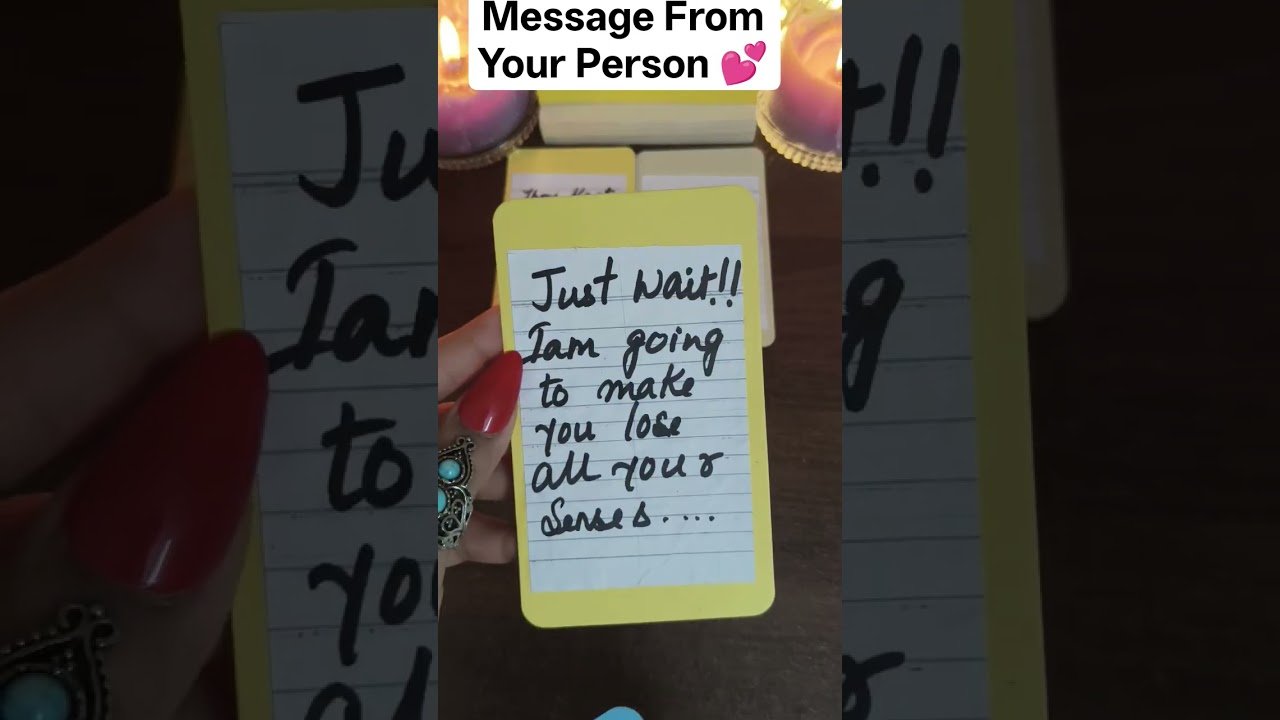 Message From
Your Person 💕
Just Wait!!
I am going
to make
you lose
all your
senses....